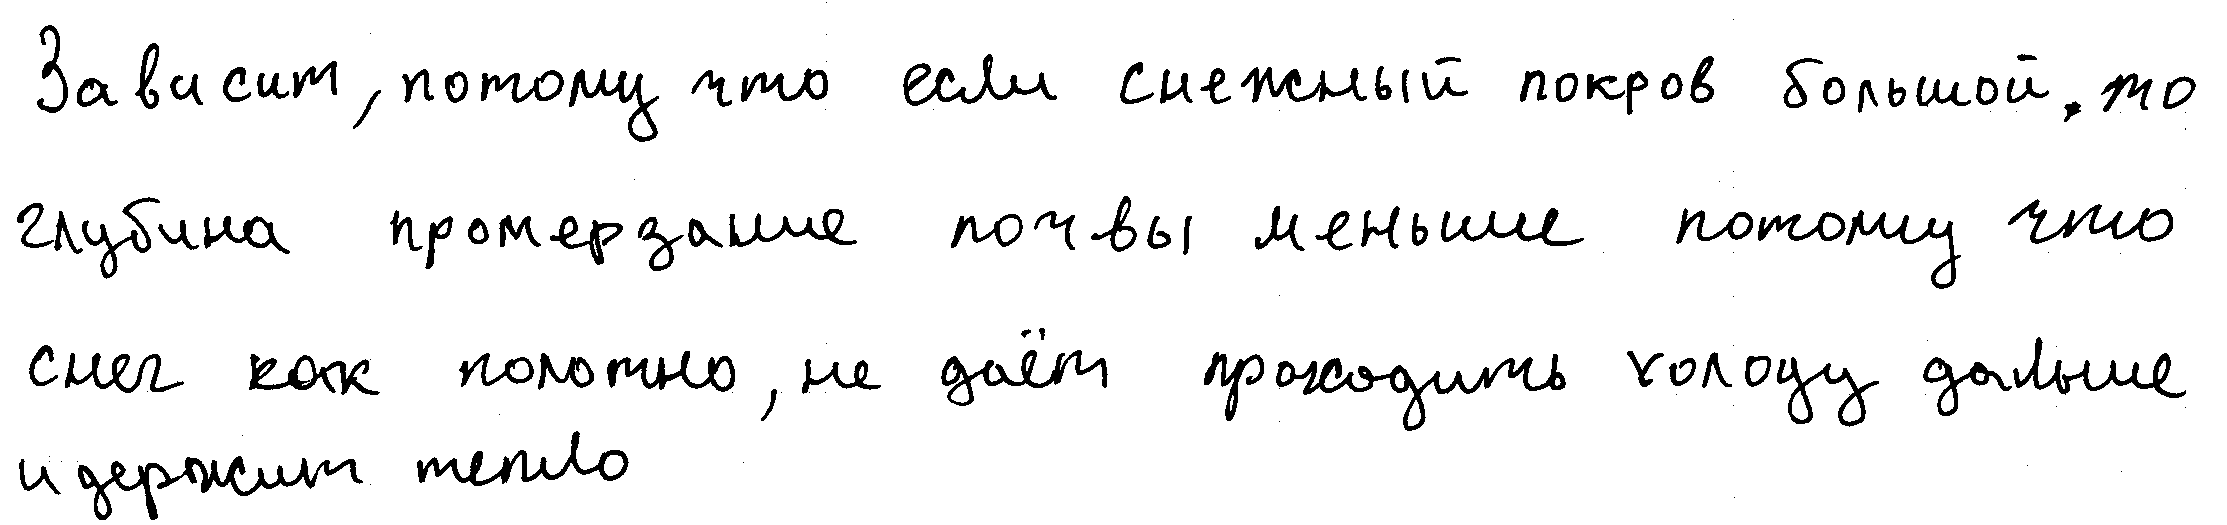 Зависит, потому что если снежный покров большой, то
глубина промерзание почвы меньше потому что
снег как полотно, не даёт проходить холоду дальше
и держит тепло